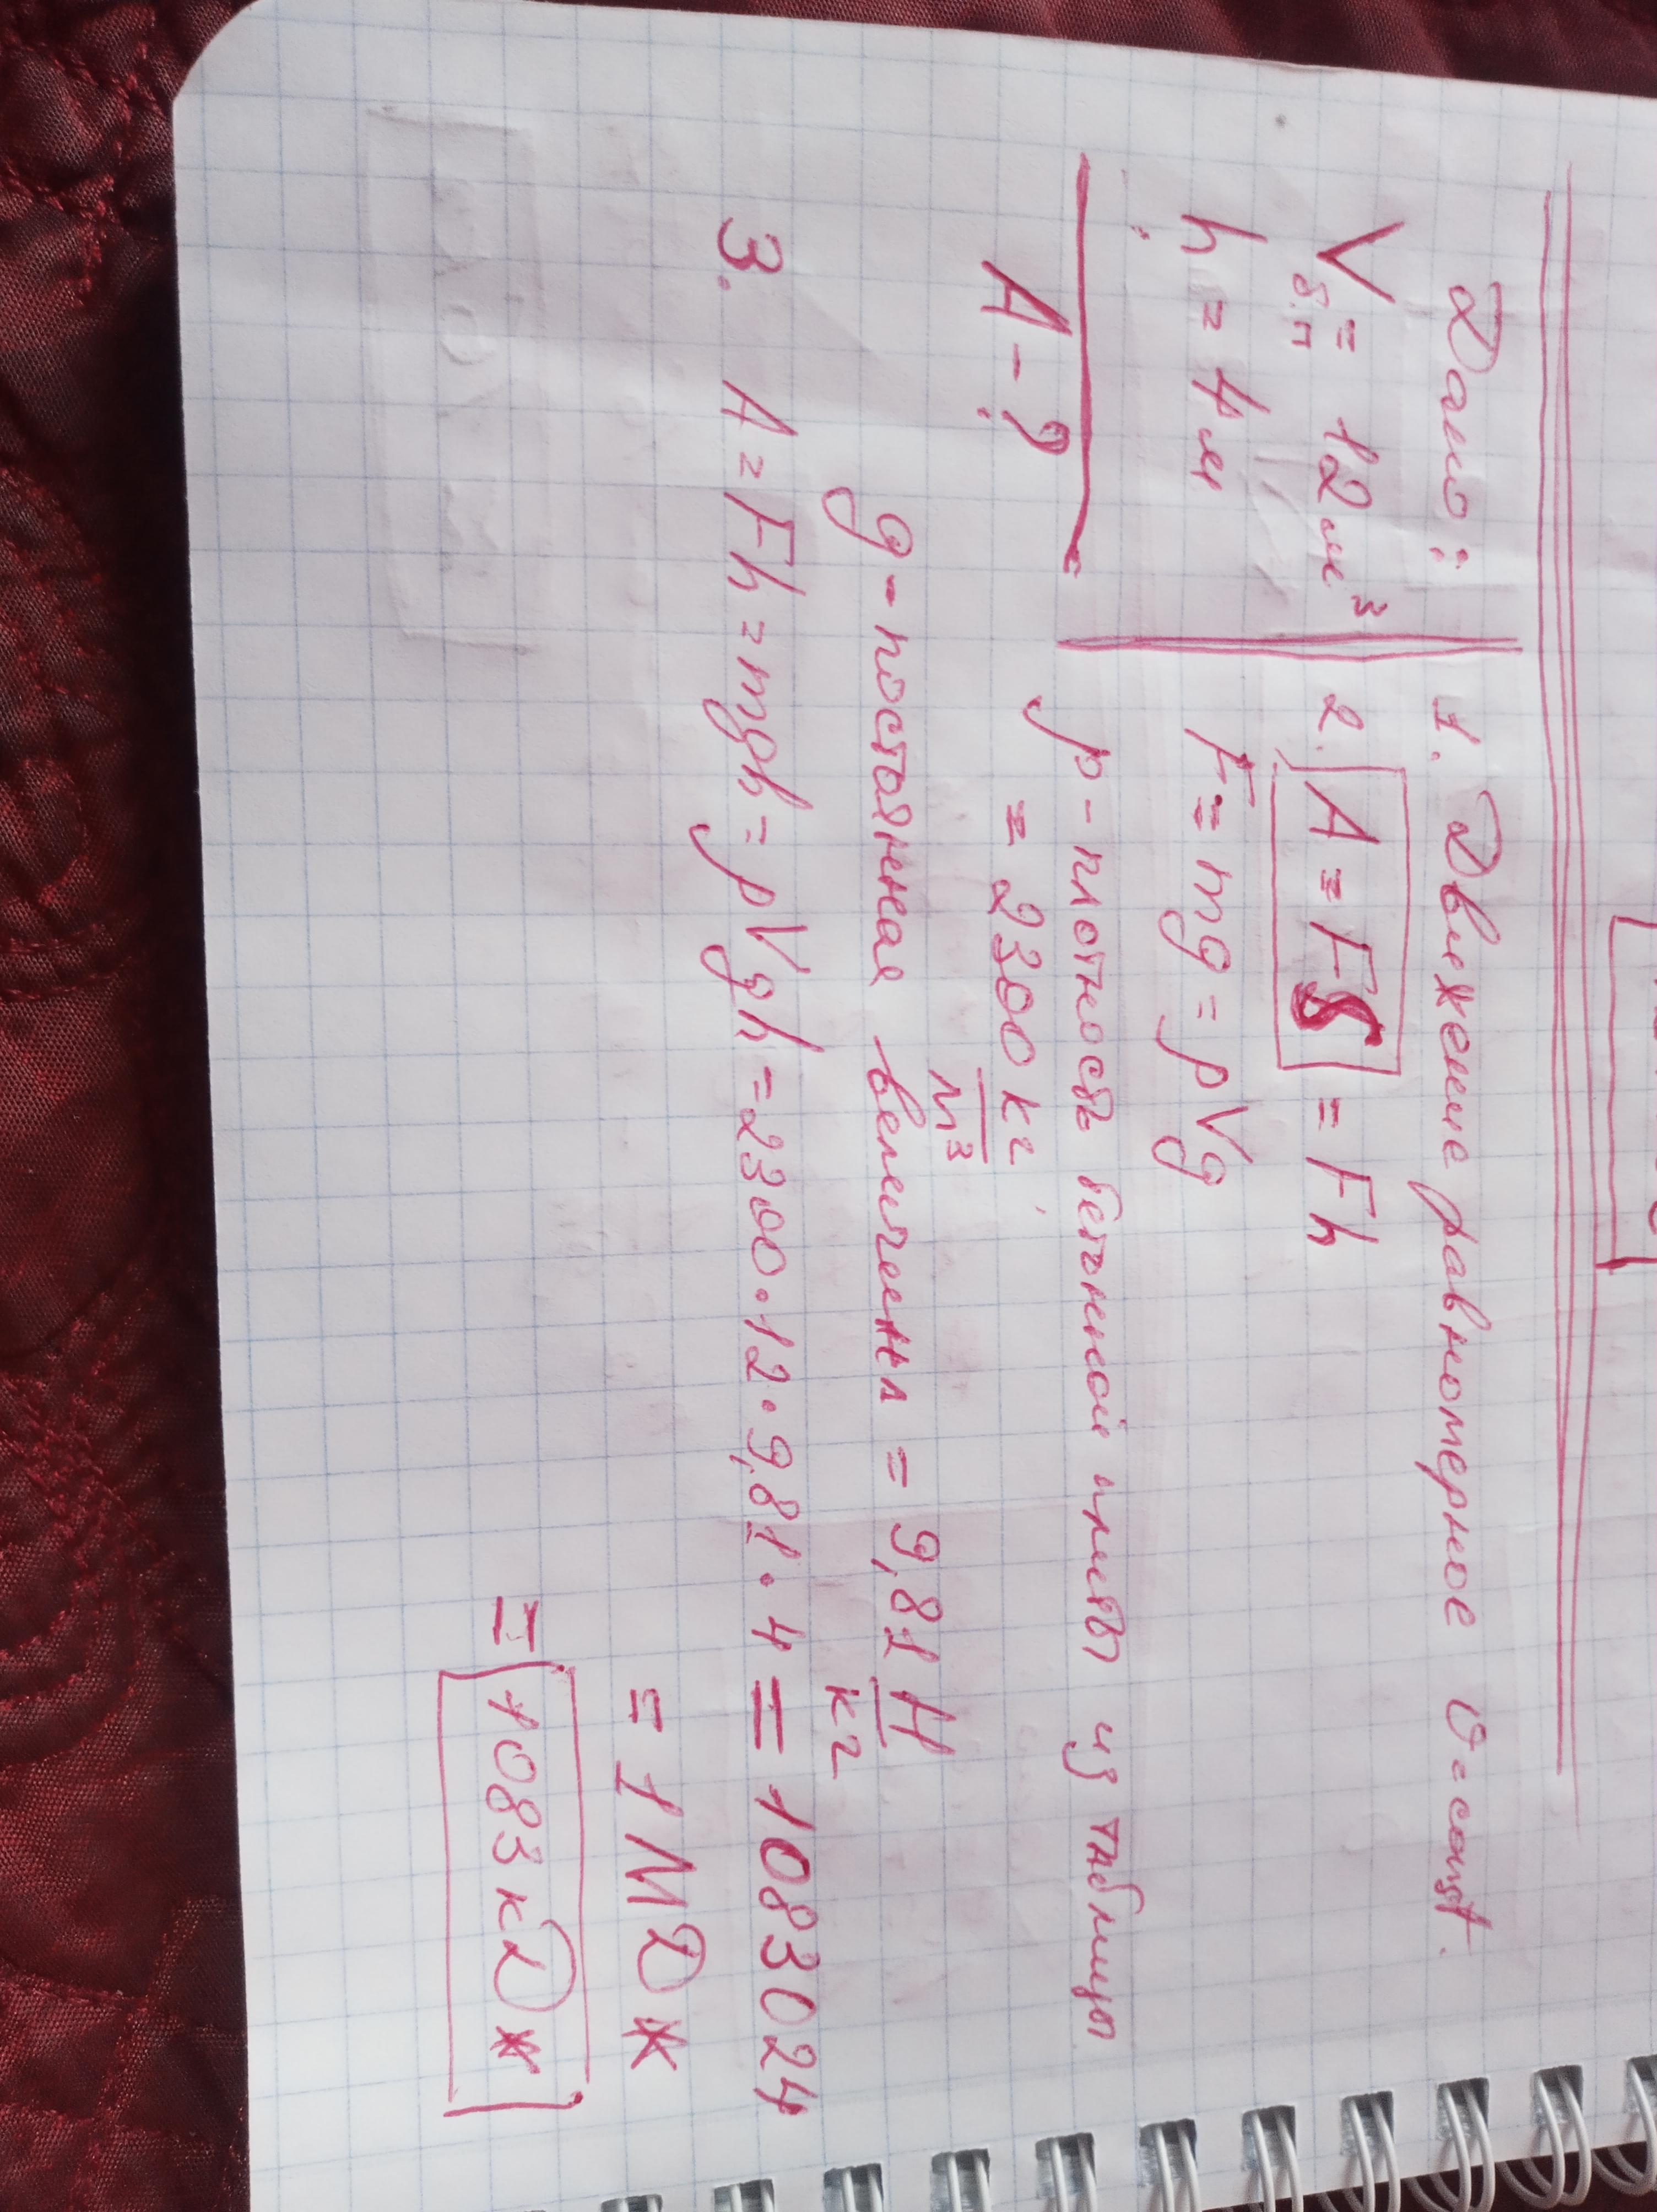 Дано:
V б.п = 12 м³
h = 4 м
A - ?
1. Движение равномерное υ = const.
2. A = FS = Fh
F = mg = ρVg
ρ - плотность бетонной плиты из таблицы
= 2300 кг/м³
g - постоянная величена = 9,81 Н/кг
3. A = Fh = mgh = ρVgh = 2300 · 12 · 9,81 · 4 = 1083024
= 1 МДж
= 1083 кДж